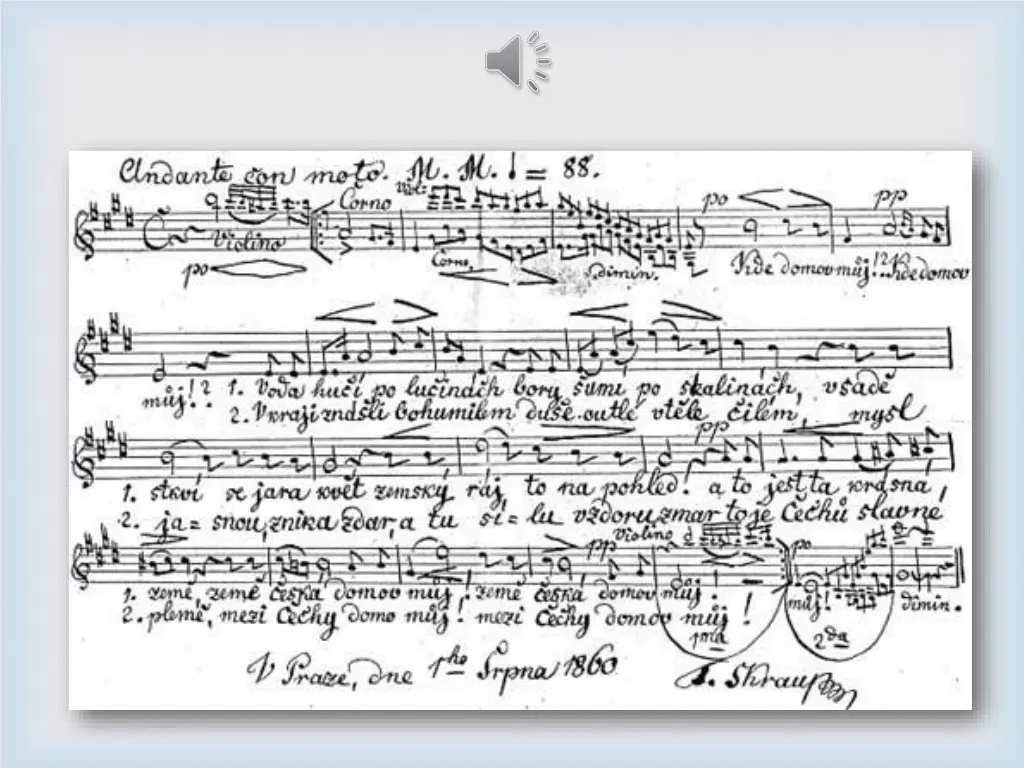 Andante con moto. M. M. ♩ = 88.
Viol: Corno po pp
Violino
po Corno. dimin. Kde domov můj!? Kde domov
můj!? 1. Voda hučí po lučinách bory šumí po skalinách, v sadě
2. V kraji znášli bohumilém duše outlé v těle čilém, mysl
pp
1. stkví se jara květ zemský ráj, to na pohled! a to jest ta krásná,
2. ja=snou, znik a zdar, a tu sí=lu vzdoru zmar to je Čechů slavné
Violino pp po
1. země, země česká domov můj! země česká domov můj! můj! dimin.
2. plémě, mezi Čechy domo můj! mezi Čechy domov můj!
1ma 2da
V Praze, dne 1ho Srpna 1860 F. Skraup